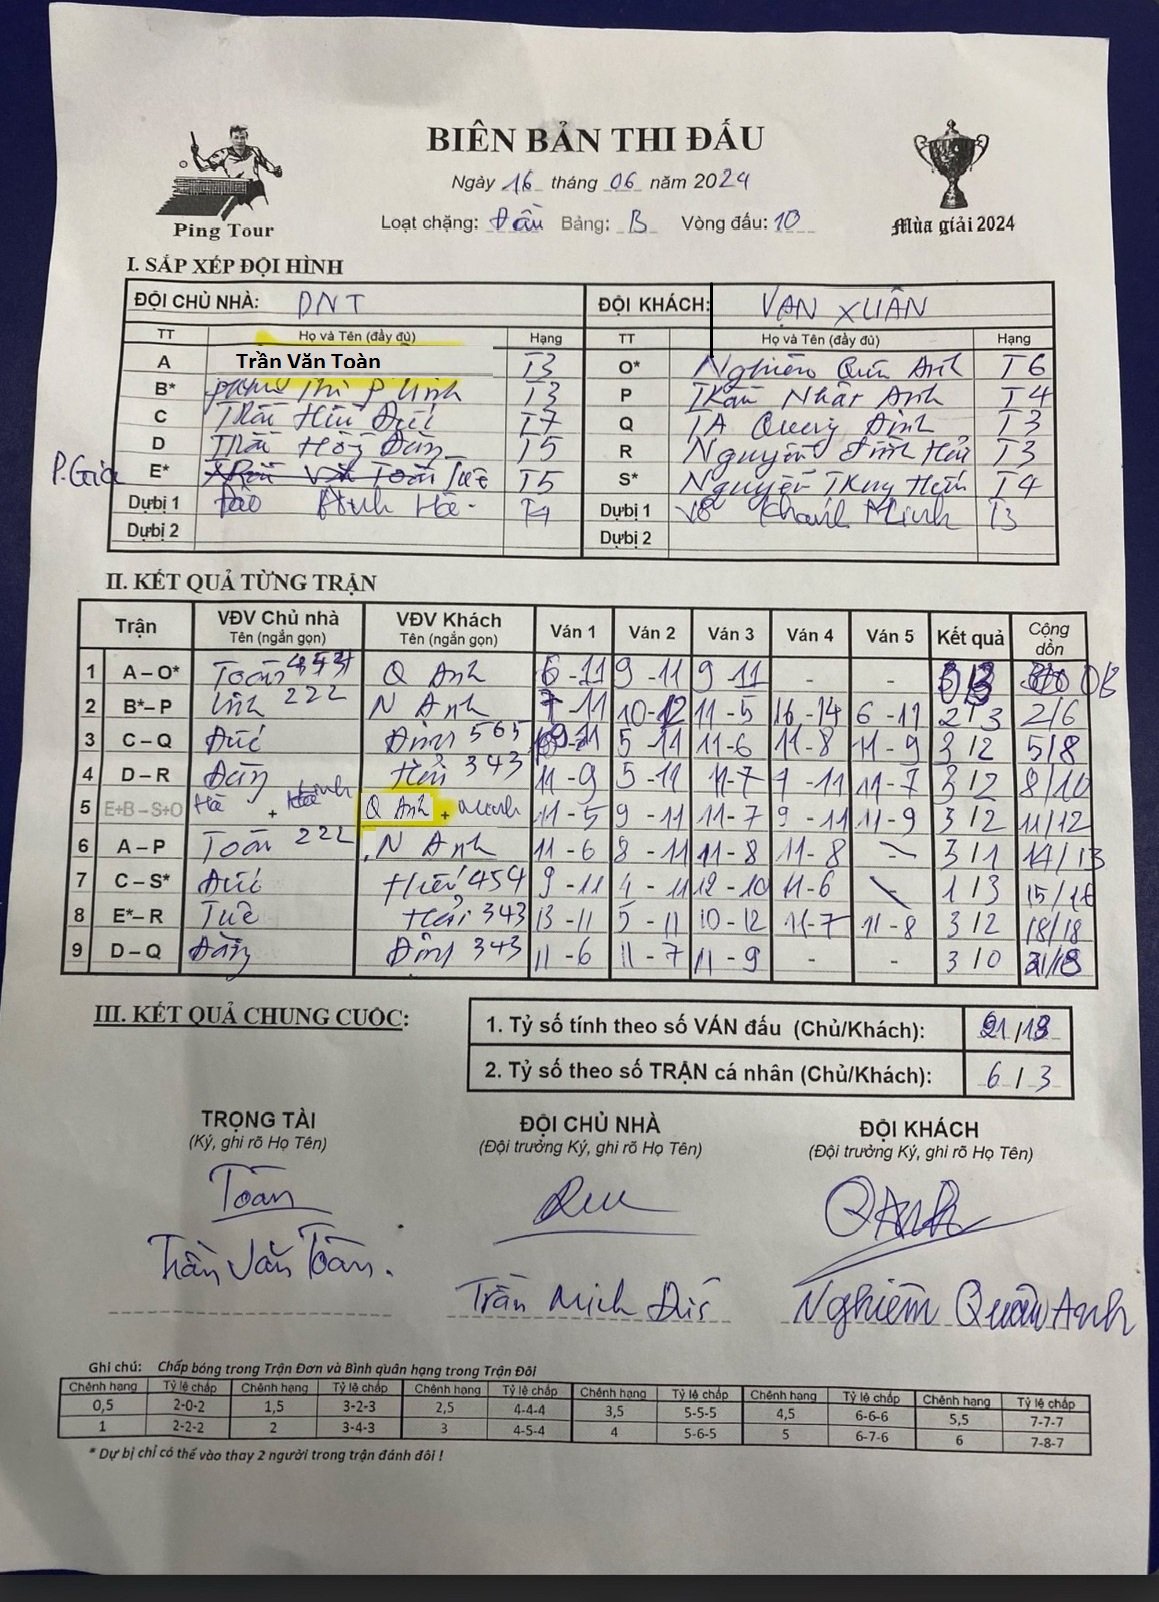 BIÊN BẢN THI ĐẤU
Ngày 16 tháng 06 năm 2024
Ping Tour
Loạt chặng: Đầu Bảng: B Vòng đấu: 10
Mùa giải 2024
I. SẮP XẾP ĐỘI HÌNH
ĐỘI CHỦ NHÀ: DNT ĐỘI KHÁCH: VẠN XUÂN
TT Họ và Tên (đầy đủ) Hạng TT Họ và Tên (đầy đủ) Hạng
A Trần Văn Toàn T3 O* Nghiêm Quân Anh T6
B* P Linh T3 P Trần Nhật Anh T4
C Đức T7 Q TA Quang Định T3
D T5 R Nguyễn Đình Hải T3
P.Gia E* Tuệ T5 S* Nguyễn Hiếu T4
Dự bị 1 Đào Hà T4 Dự bị 1 Minh T3
Dự bị 2 Dự bị 2
II. KẾT QUẢ TỪNG TRẬN
Trận VĐV Chủ nhà Tên (ngắn gọn) VĐV Khách Tên (ngắn gọn) Ván 1 Ván 2 Ván 3 Ván 4 Ván 5 Kết quả Cộng dồn
1 A – O* Toàn Q Anh 6 - 11 9 - 11 9 - 11 - - 0/3
2 B* – P Linh 222 N Anh 7 - 11 10 - 12 11 - 5 16 - 14 6 - 11 2 / 3 2/6
3 C – Q Đức Định 565 5 - 11 11 - 6 11 - 8 11 - 9 3 / 2 5/8
4 D – R Đàn Hải 343 11 - 9 5 - 11 11 - 7 7 - 11 11 - 7 3 / 2 8/10
5 E+B – S+O Hà + Q Anh + Minh 11 - 5 9 - 11 11 - 7 9 - 11 11 - 9 3 / 2 11/12
6 A – P Toàn 222 N Anh 11 - 6 8 - 11 11 - 8 11 - 8 - 3 / 1 14/13
7 C – S* Đức Hiếu 454 9 - 11 4 - 11 12 - 10 11 - 6 1 / 3 15/16
8 E* – R Tuệ Hải 343 13 - 11 5 - 11 10 - 12 11 - 7 11 - 8 3 / 2 18/18
9 D – Q Đàn Định 343 11 - 6 11 - 7 11 - 9 - - 3 / 0 21/18
III. KẾT QUẢ CHUNG CUỘC:
1. Tỷ số tính theo số VÁN đấu (Chủ/Khách): 21 / 18
2. Tỷ số theo số TRẬN cá nhân (Chủ/Khách): 6 / 3
TRỌNG TÀI ĐỘI CHỦ NHÀ ĐỘI KHÁCH
(Ký, ghi rõ Họ Tên) (Đội trưởng Ký, ghi rõ Họ Tên) (Đội trưởng Ký, ghi rõ Họ Tên)
Toàn QAnh
Trần Văn Toàn. Trần Minh Đức Nghiêm Quân Anh
Ghi chú: Chấp bóng trong Trận Đơn và Bình quân hạng trong Trận Đôi
Chênh hạng Tỷ lệ chấp Chênh hạng Tỷ lệ chấp Chênh hạng Tỷ lệ chấp Chênh hạng Tỷ lệ chấp Chênh hạng Tỷ lệ chấp Chênh hạng Tỷ lệ chấp
0,5 2-0-2 1,5 3-2-3 2,5 4-4-4 3,5 5-5-5 4,5 6-6-6 5,5 7-7-7
1 2-2-2 2 3-4-3 3 4-5-4 4 5-6-5 5 6-7-6 6 7-8-7
* Dự bị chỉ có thể vào thay 2 người trong trận đánh đôi !